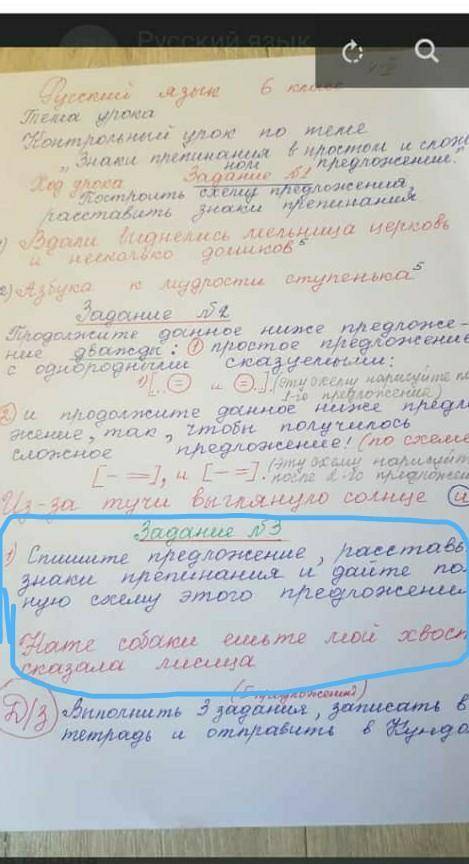 Русский язык
Русский язык 6 класс
Тема урока
Контрольный урок по теме
"Знаки препинания в простом и слож
ном предложении."
Ход урока Задание №1
Построить схему предложения,
расставить знаки препинания
1) Вдали виднелись мельница церковь
и несколько домиков⁵
2) Азбука к мудрости ступенька⁵
Задание №2
Продолжите данное ниже предложе-
ние дважды: ① простое предложение
с однородными сказуемыми:
1) [... = и =]. (эту схему нарисуйте по
1-го предложения)
② и продолжите данное ниже предло
жение, так, чтобы получилось
сложное предложение! (по схеме
[- =], и [- =]. (эту схему нарисуйт
после 2-го предложен
Из-за тучи выглянуло солнце и
Задание №3
1) Спишите предложение, расставь
знаки препинания и дайте по
ную схему этого предложени
Нате собаки ешьте мой хвост
сказала лисица
(5 предложений)
Д/з Выполнить 3 задания, записать в
тетрадь и отправить в Кундо